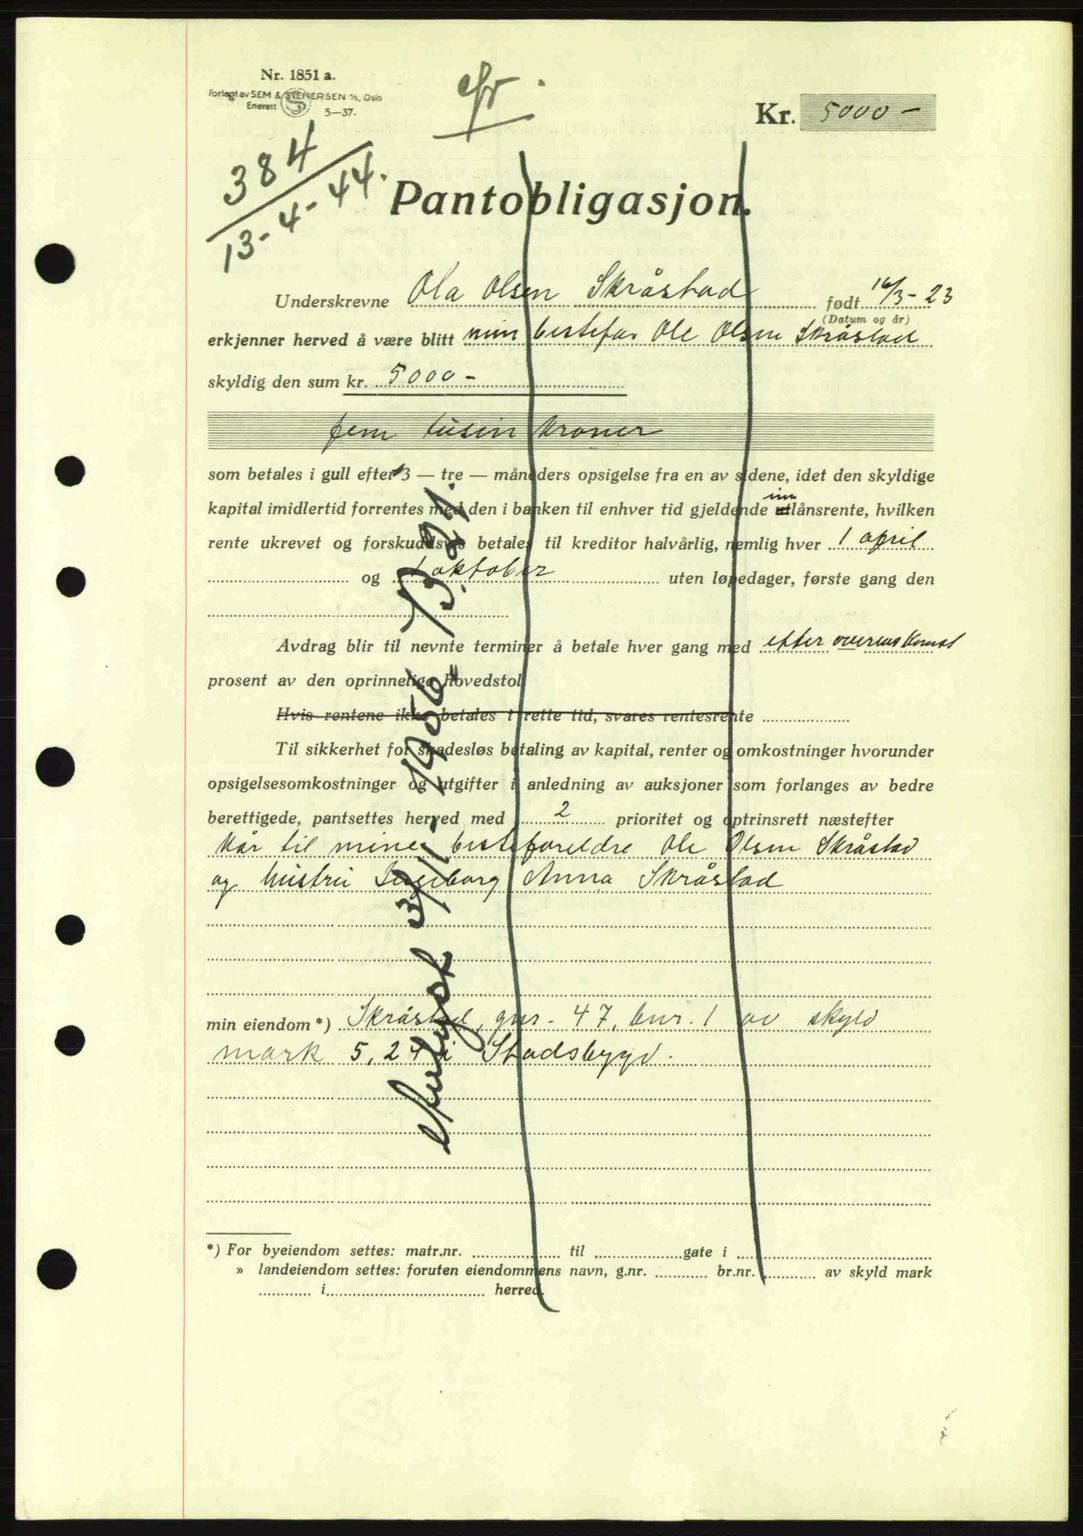 Nr. 1851 a.
Forlagt av SEM & STENERSEN A/S, Oslo
Enerett S 5—37.
Kr. 5000 —
384
13-4-44.
Pantobligasjon.
Underskrevne Ola Olsen Skråstad født 16/3-23
(Datum og år)
erkjenner herved å være blitt min bestefar Ole Olsen Skråstad
skyldig den sum kr. 5000 —
fem tusin kroner
som betales i gull efter 3 — tre — måneders opsigelse fra en av sidene, idet den skyldige
kapital imidlertid forrentes med den i banken til enhver tid gjeldende inn utlånsrente, hvilken
rente ukrevet og forskuddsvis betales til kreditor halvårlig, nemlig hver 1 april
og 1 oktober uten løpedager, første gang den
Avdrag blir til nevnte terminer å betale hver gang med efter overenskomst
prosent av den oprinnelige hovedstol.
Hvis rentene ikke betales i rette tid, svares rentesrente
Til sikkerhet for skadesløs betaling av kapital, renter og omkostninger hvorunder
opsigelsesomkostninger og utgifter i anledning av auksjoner som forlanges av bedre
berettigede, pantsettes herved med 2 prioritet og optrinsrett næstefter
kår til mine besteforeldre Ole Olsen Skråstad
og hustru Ingeborg Anna Skråstad
min eiendom *) Skråstad, gnr. 47, bnr. 1 av skyld
mark 5,24 i Stadsbygd.
Avlyst 3/11-1956. B. 21.
*) For byeiendom settes: matr.nr. til gate i
» landeiendom settes: foruten eiendommens navn, g.nr. br.nr. av skyld mark
i herred.